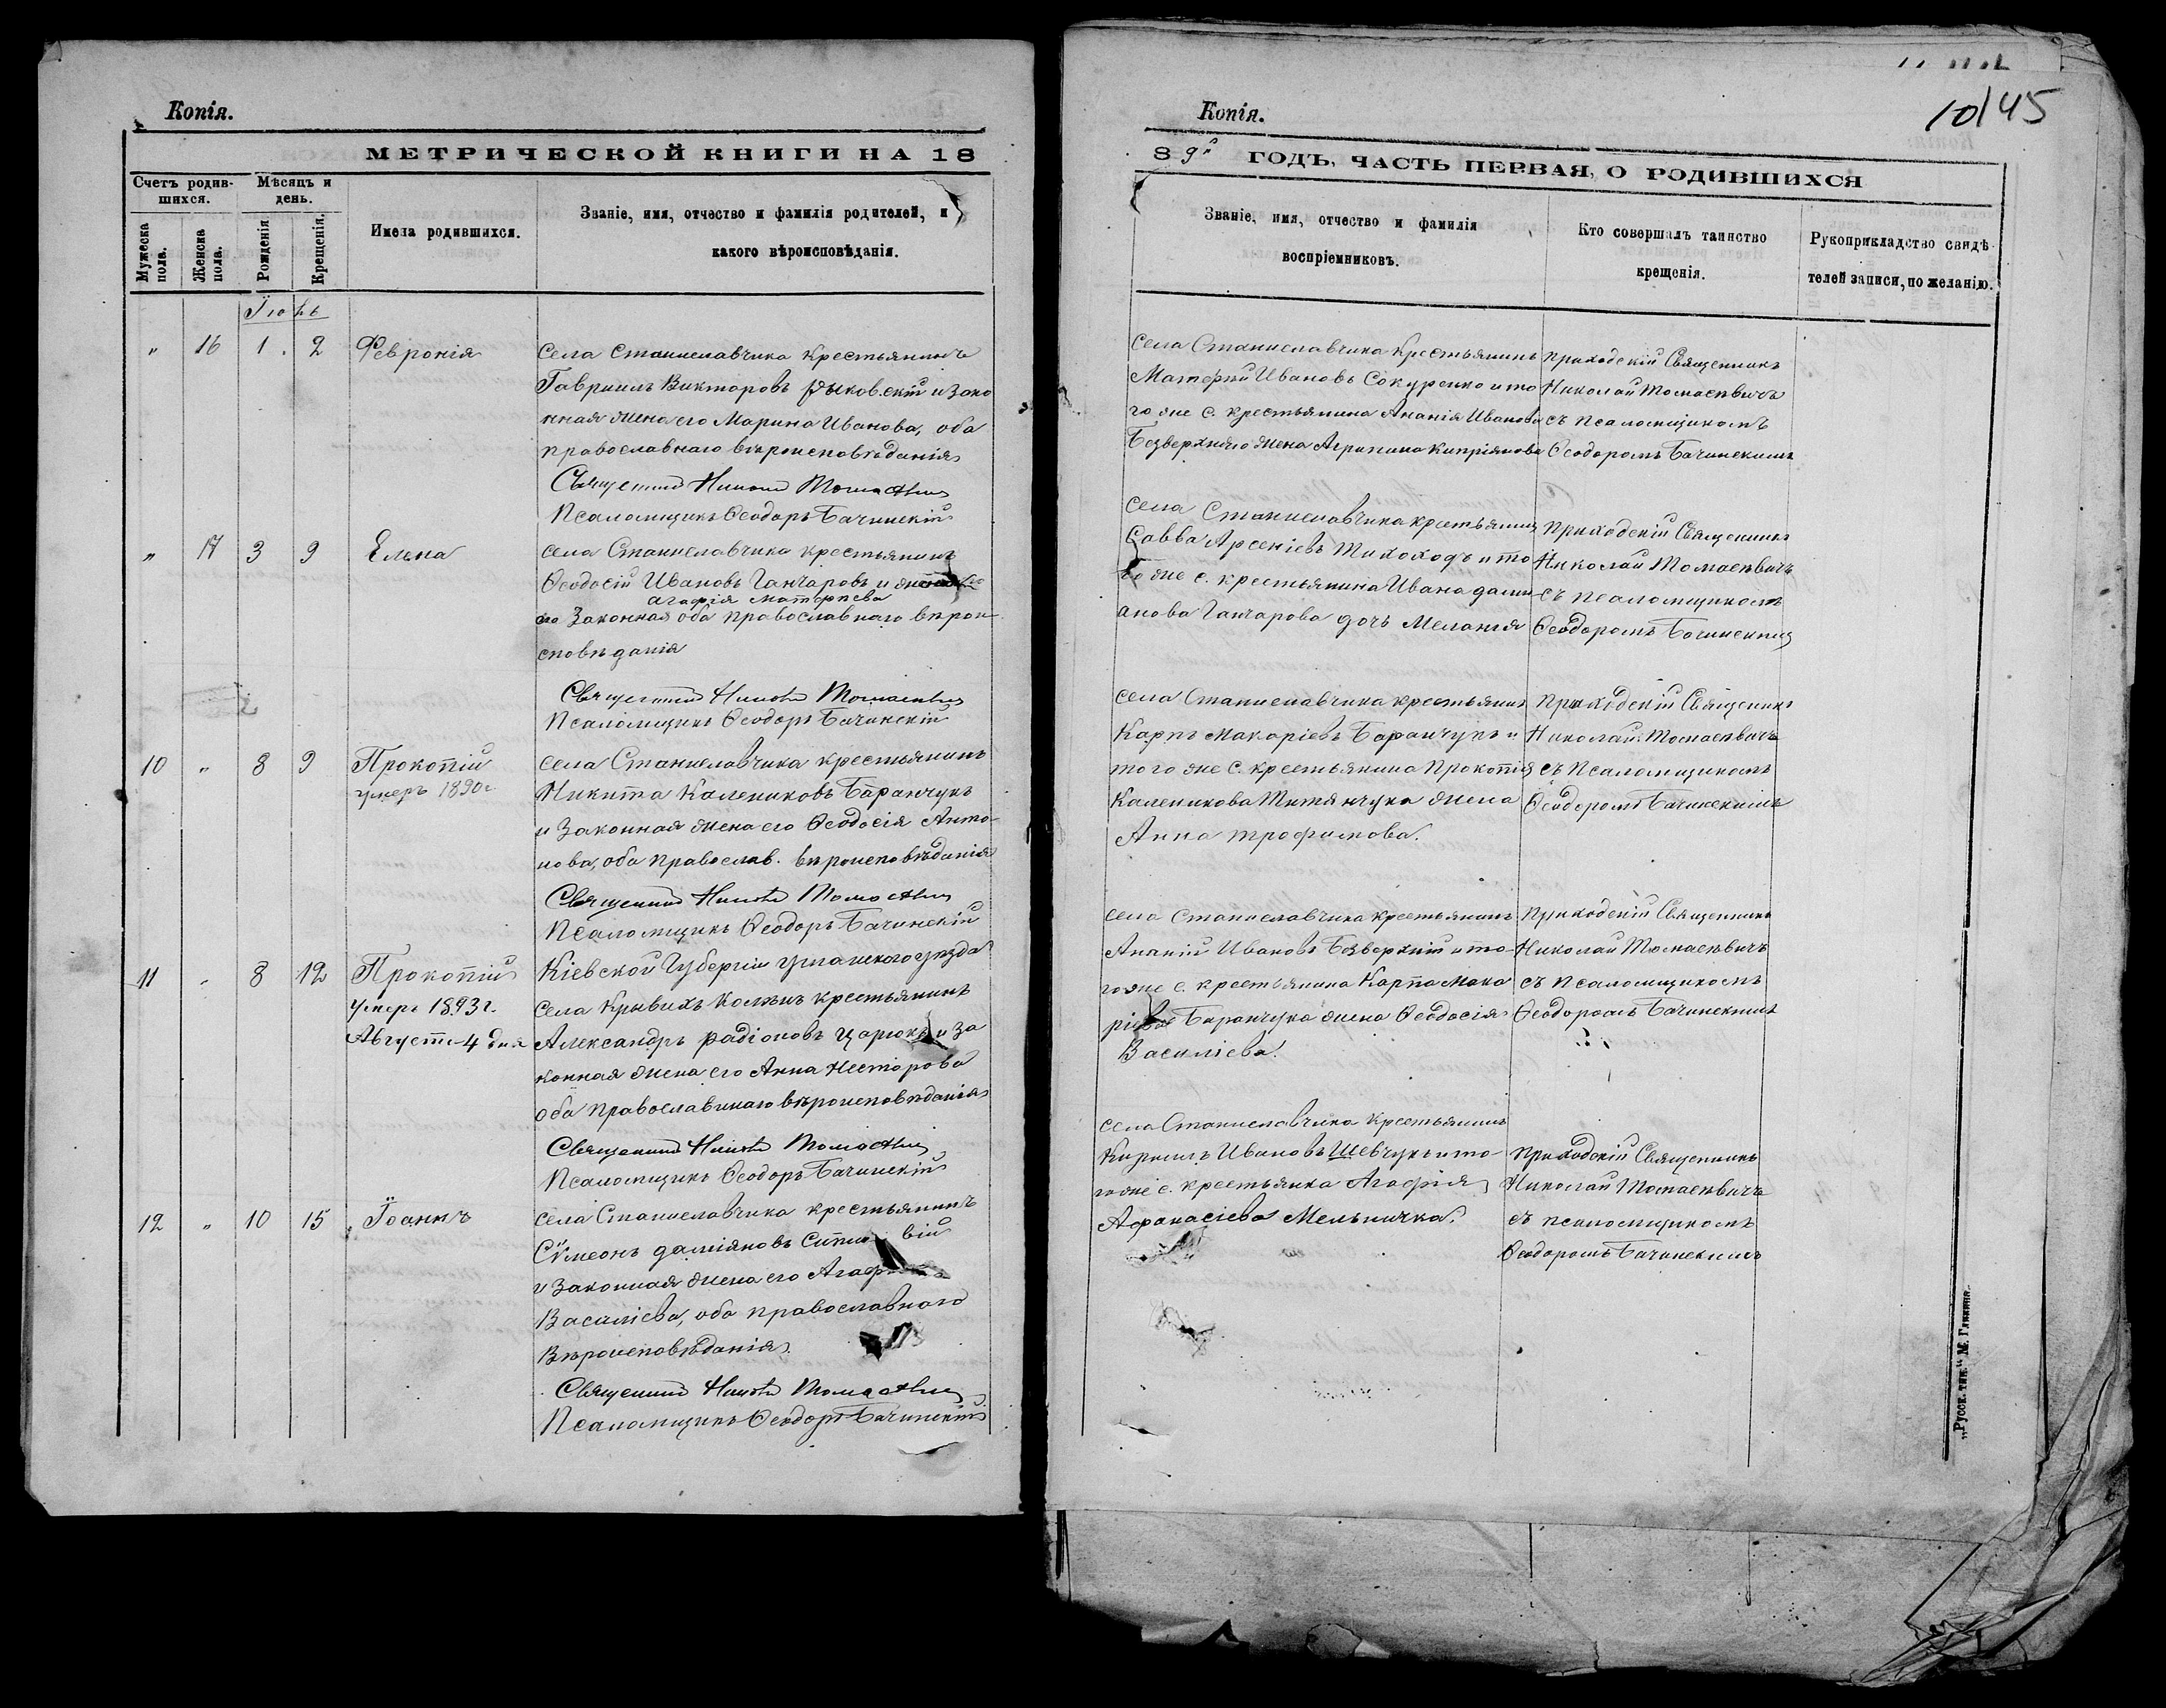 Копія.
МЕТРИЧЕСКОЙ КНИГИ НА 18
Счетъ родив-
шихся.
Мѣсяцъ и
день.
Мужеска
пола.
Женска
пола.
Рожденія
Крещенія.
Имена родившихся.
Званіе, имя, отчество и фамилія родителей, и
какого вѣроисповѣданія.
Іюнь
" 16 1. 2 Февронія
Села Станиславчика крестьянинъ
Гавріилъ Викторовъ и зако
нная жена его Марина Иванова, оба
православнаго вѣроисповѣданія
Священникъ Николай Томасевичъ
Псаломщикъ Ѳеодоръ Бачинскій
" 17 3 9 Елена
Села Станиславчика крестьянинъ
Ѳеодосій Ивановъ Ганчаровъ и
Агафія Матѳіева
законная оба православнаго вѣрои-
сповѣданія
Священникъ Николай Томасевичъ
Псаломщикъ Ѳеодоръ Бачинскій
10 " 8 9 Прокопій
умеръ 1890г
Села Станиславчика крестьянинъ
Никита Калениковъ Баранчукъ
и законная жена его Ѳеодосія Анто-
нова, оба православ. вѣроисповѣданія
Священникъ Николай Томасевичъ
Псаломщикъ Ѳеодоръ Бачинскій
11 " 8 12 Прокопій
Умеръ 1893 г.
Августа 4 дня
Кіевской Губерніи Уманского уѣзда
села Кривихъ Колѣнъ крестьянинъ
Александръ Радіоновъ Царюкъ и за
конная жена его Анна Несторова
оба православнаго вѣроисповѣданія
Священникъ Николай Томасевичъ
Псаломщикъ Ѳеодоръ Бачинскій
12 " 10 15 Іоаннъ
Села Станиславчика крестьянинъ
Сѵмеонъ Даміяновъ
и законная жена его
Василіева, оба православного
Вѣроисповѣданія.
Священникъ Николай Томасевичъ
Псаломщикъ Ѳеодоръ Бачинскій
Копія.
10/45
89 ГОДЪ, ЧАСТЬ ПЕРВАЯ, О РОДИВШИХСЯ
Званіе, имя, отчество и фамилія
воспріемниковъ.
Кто совершалъ таинство
крещенія.
Рукоприкладство свидѣ-
телей записи, по желанію.
Села Станиславчика крестьянинъ
Матѳій Ивановъ Сокуренко и то
го же с. крестьянина Ананія Иванова
Безверхняго жена Агрипина Кипріянова
Приходскій Священникъ
Николай Томасевичъ
съ псаломщикомъ
Ѳеодоромъ Бачинскимъ
Села Станиславчика крестьянинъ
Савва Арсеніевъ Тихоходъ и то
го же с. крестьянина Ивана Дами-
анова Ганчарова дочь Меланія
Приходскій Священникъ
Николай Томасевичъ
съ псаломщикомъ
Ѳеодоромъ Бачинскимъ
Села Станиславчика крестьянинъ
Карпъ Макаріевъ Баранчукъ и
того же с. крестьянина Прокопія
Каленикова Титянчука жена
Анна Трофимова.
Приходскій Священникъ
Николай Томасевичъ
съ Псаломщикомъ
Ѳеодоромъ Бачинскимъ
Села Станиславчика крестьянинъ
Ананій Ивановъ Безверхній и то-
го же с. крестьянина Карпа Мака
ріева Баранчука жена Ѳеодосія
Василіева.
Приходскій Священникъ
Николай Томасевичъ
съ Псаломщикомъ
Ѳеодоромъ Бачинскимъ
Села Станиславчика крестьянинъ
Кирилъ Ивановъ Шевчукъ и то-
го же с. крестьянка Агафія
Афанасіева Мельничка.
Приходскій Священникъ
Николай Томасевичъ
съ псаломщикомъ
Ѳеодоромъ Бачинскимъ
„Русск. тип." М. Гликина.